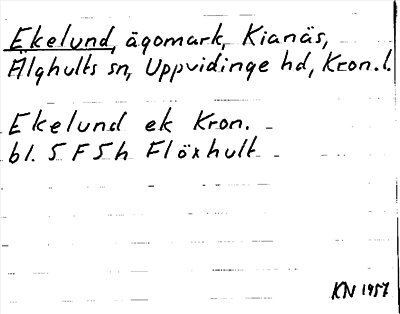 Ekelund, ägomark, Kianäs,
Älghults sn, Uppvidinge hd, Kron.l.
Ekelund ek Kron.
bl. 5 F 5 h Flöxhult
KN 1957